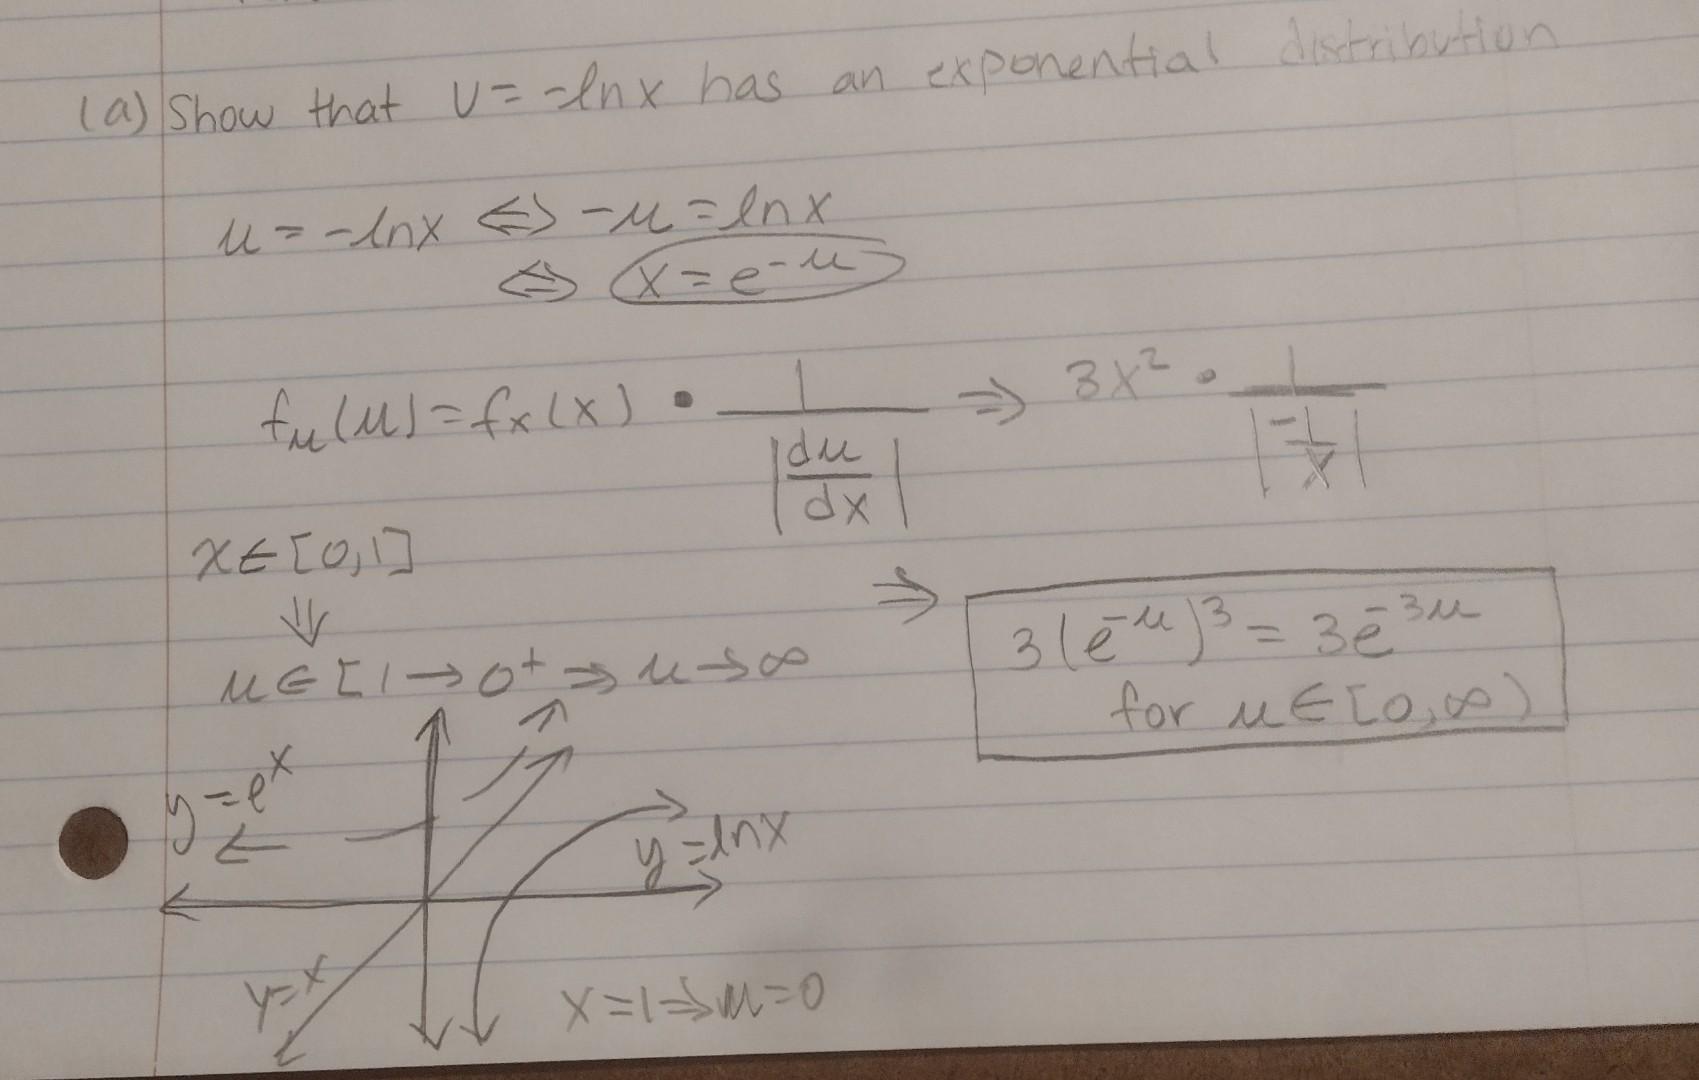 (a) Show that U = -ln x has an exponential distribution
u = -ln x ⇔ -u = ln x
⇔ x = e^{-u}
f_u(u) = f_x(x) • 1/|du/dx| ⇒ 3x² • 1/|-1/x|
x ∈ [0,1]
⇓
⇒ 3(e^{-u})³ = 3e^{-3u}
u ∈ [1 → 0⁺ ⇒ u → ∞
for u ∈ [0, ∞)
y = e^x
y = ln x
y = x
x = 1 ⇒ u = 0